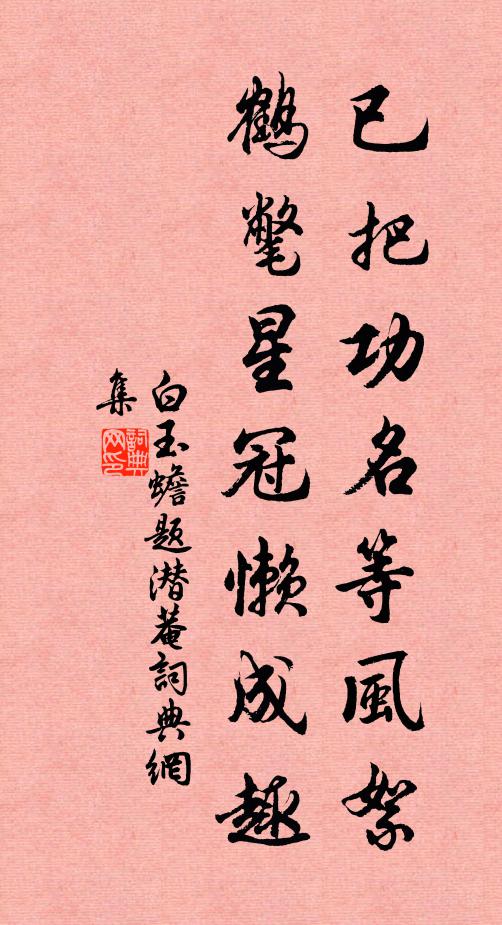 已把功名等風絮
鶴氅星冠懶成趣
白玉蟾題潛菴詞典網
集
詞典网印